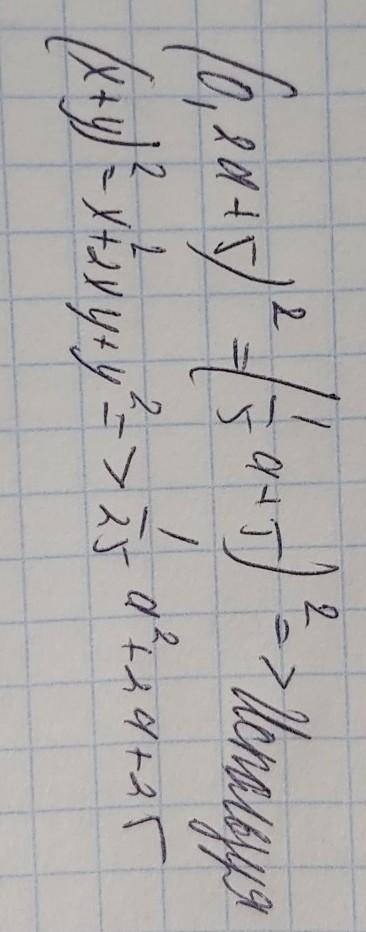 (0,2a+5)² = (1/5 a+5)² => Используя
(x+y)² = x²+2xy+y² => 1/25 a²+2a+25